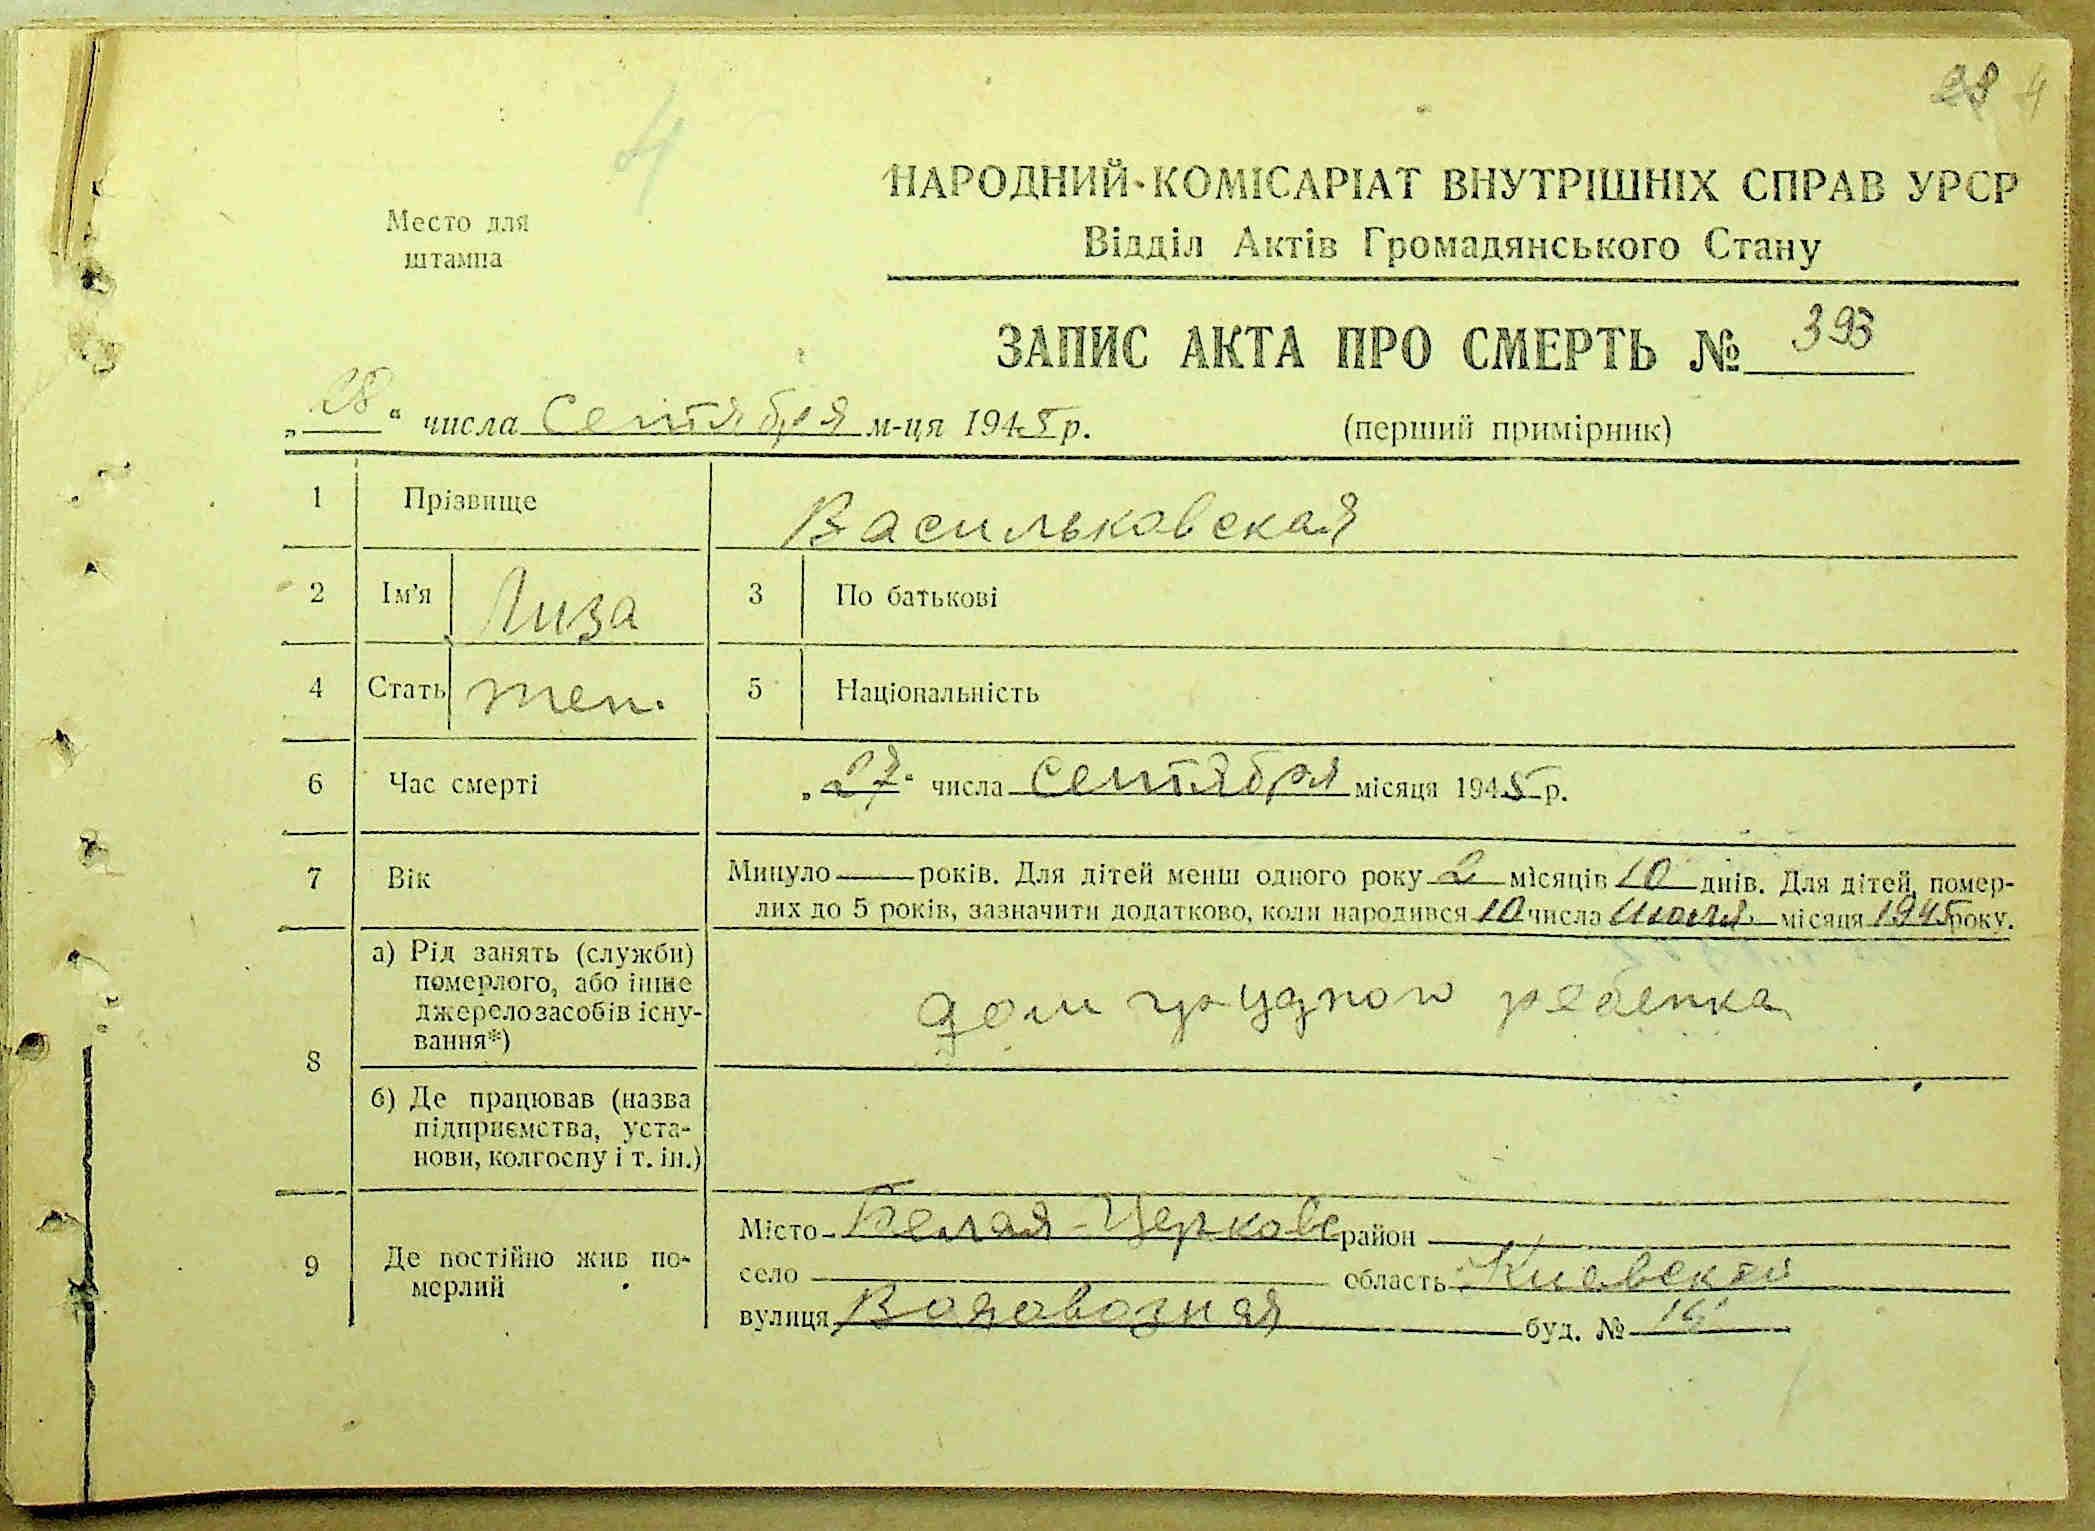 4
Место для
штампа
НАРОДНИЙ КОМІСАРІАТ ВНУТРІШНІХ СПРАВ УРСР
Відділ Актів Громадянського Стану
ЗАПИС АКТА ПРО СМЕРТЬ № 393
„28“ числа Сентября м-ця 1945 р.
(перший примірник)
1 Прізвище Васильковская
2 Ім'я Лиза 3 По батькові
4 Стать жен. 5 Національність
6 Час смерті „27“ числа Сентября місяця 1945 р.
7 Вік Минуло — років. Для дітей менш одного року 2 місяців 10 днів. Для дітей, помер-
лих до 5 років, зазначити додатково, коли народився 10 числа Июля місяця 1945 року.
8 а) Рід занять (служби)
померлого, або інше
джерело засобів існу-
вання*)
дом грудного ребенка
б) Де працював (назва
підприємства, уста-
нови, колгоспу і т. ін.)
9 Де постійно жив по-
мерлий
Місто Белая-Церковь район
село область Киевская
вулиця буд. №